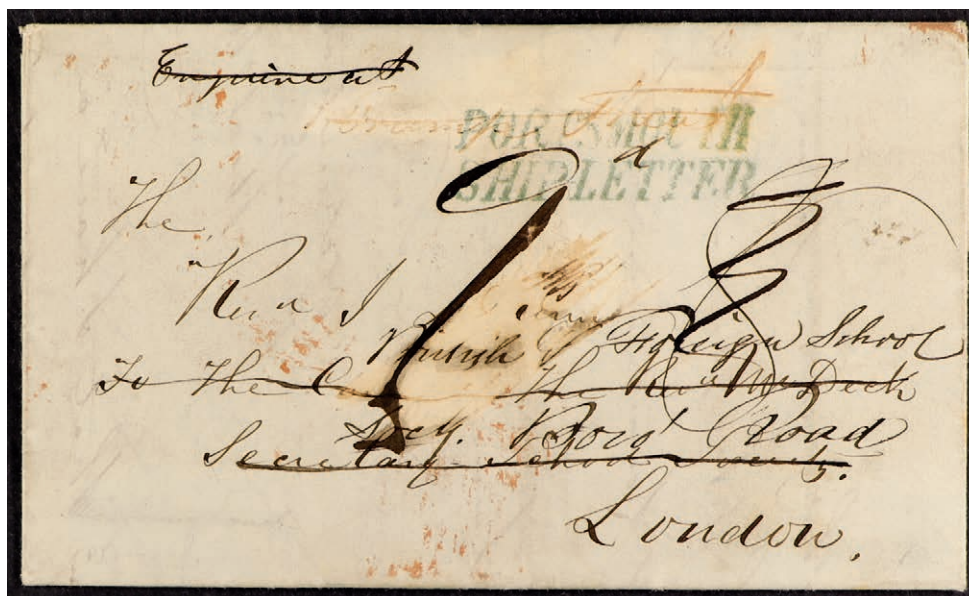 Enquire at
PORTSMOUTH
SHIP LETTER
The
Revd J
British Foreign School
To The The Revd Mr Deck
Socy. Boro' Road
Secretary School Society.
London.